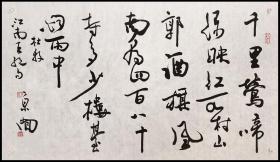 千里鶯啼
绿映红水村山
郭酒旗风
南朝四百八十
寺多少樓臺
烟雨中
杜牧
江南春绝句